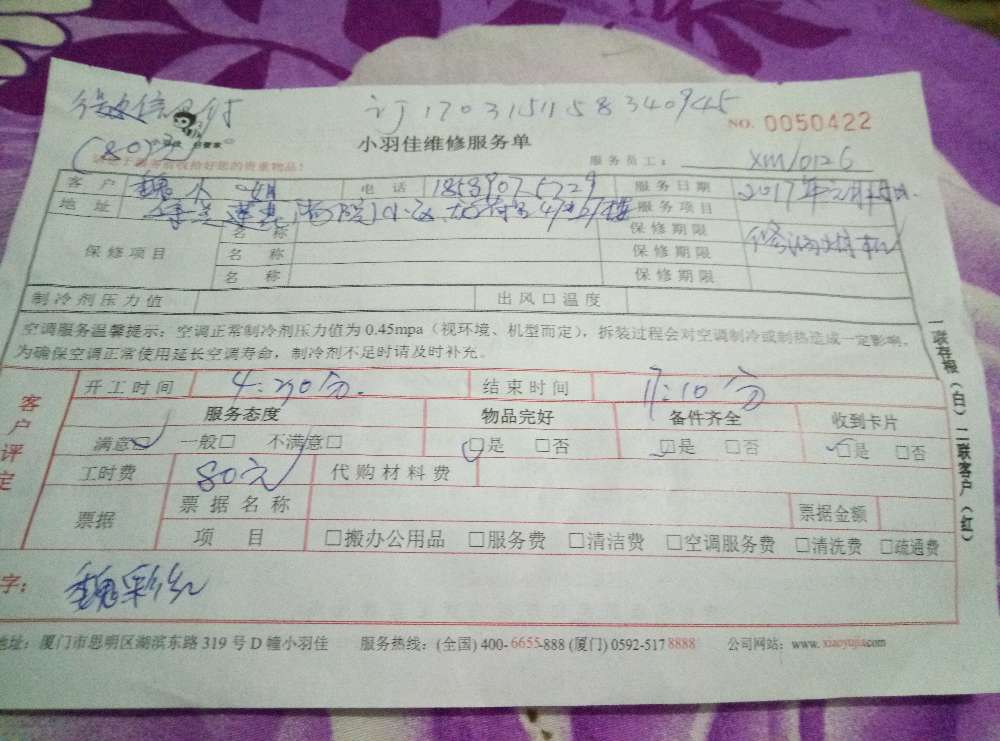 订1703151158340945
(80元)
NO. 0050422
小羽佳维修服务单
服务员工： XM10126
客户 魏小姐 电话 服务日期 2017年
地址 服务项目
保修项目 名称 保修期限
名称 保修期限
名称 保修期限
制冷剂压力值 出风口温度
空调服务温馨提示：空调正常制冷剂压力值为 0.45mpa（视环境、机型而定），拆装过程会对空调制冷或制热造成一定影响，
为确保空调正常使用延长空调寿命，制冷剂不足时请及时补充。
客户评定
开工时间 4:30分. 结束时间 17:10分
服务态度 物品完好 备件齐全 收到卡片
满意□ 一般□ 不满意□ □是 □否 □是 □否 □是 □否
工时费 80元 代购材料费
票据 票据名称 票据金额
项目 □搬办公用品 □服务费 □清洁费 □空调服务费 □清洗费 □疏通费
字： 魏彩红
地址：厦门市思明区湖滨东路 319 号 D 幢小羽佳 服务热线：(全国) 400-6655-888 (厦门) 0592-5178888 公司网站：www.xiaoyujia.com
一联存根（白）二联客户（红）